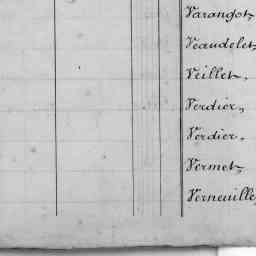 Varangot,
Veaudelet,
Veillet,
Verdier,
Verdier,
Vermet,
Verneuille,